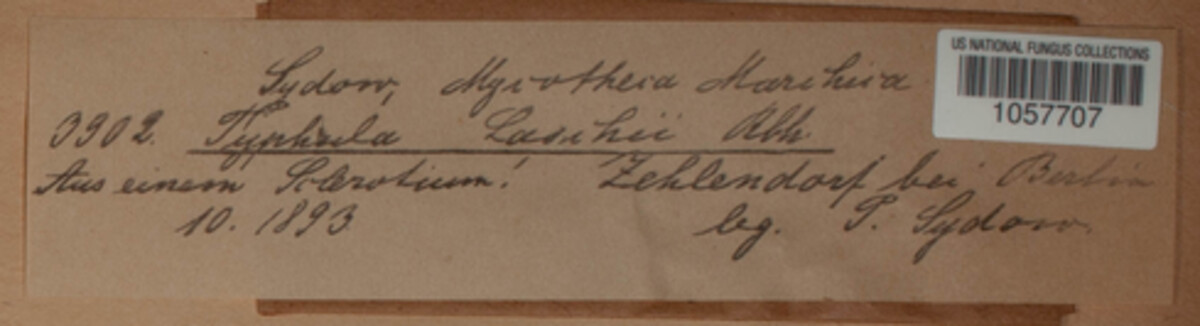 Sydow, Mycotheca Marchica
3902. Typhula Laschii Rbh.
Aus einem Sclerotium! Zehlendorf bei Berlin
10. 1893 leg. P. Sydow.
US NATIONAL FUNGUS COLLECTIONS
1057707